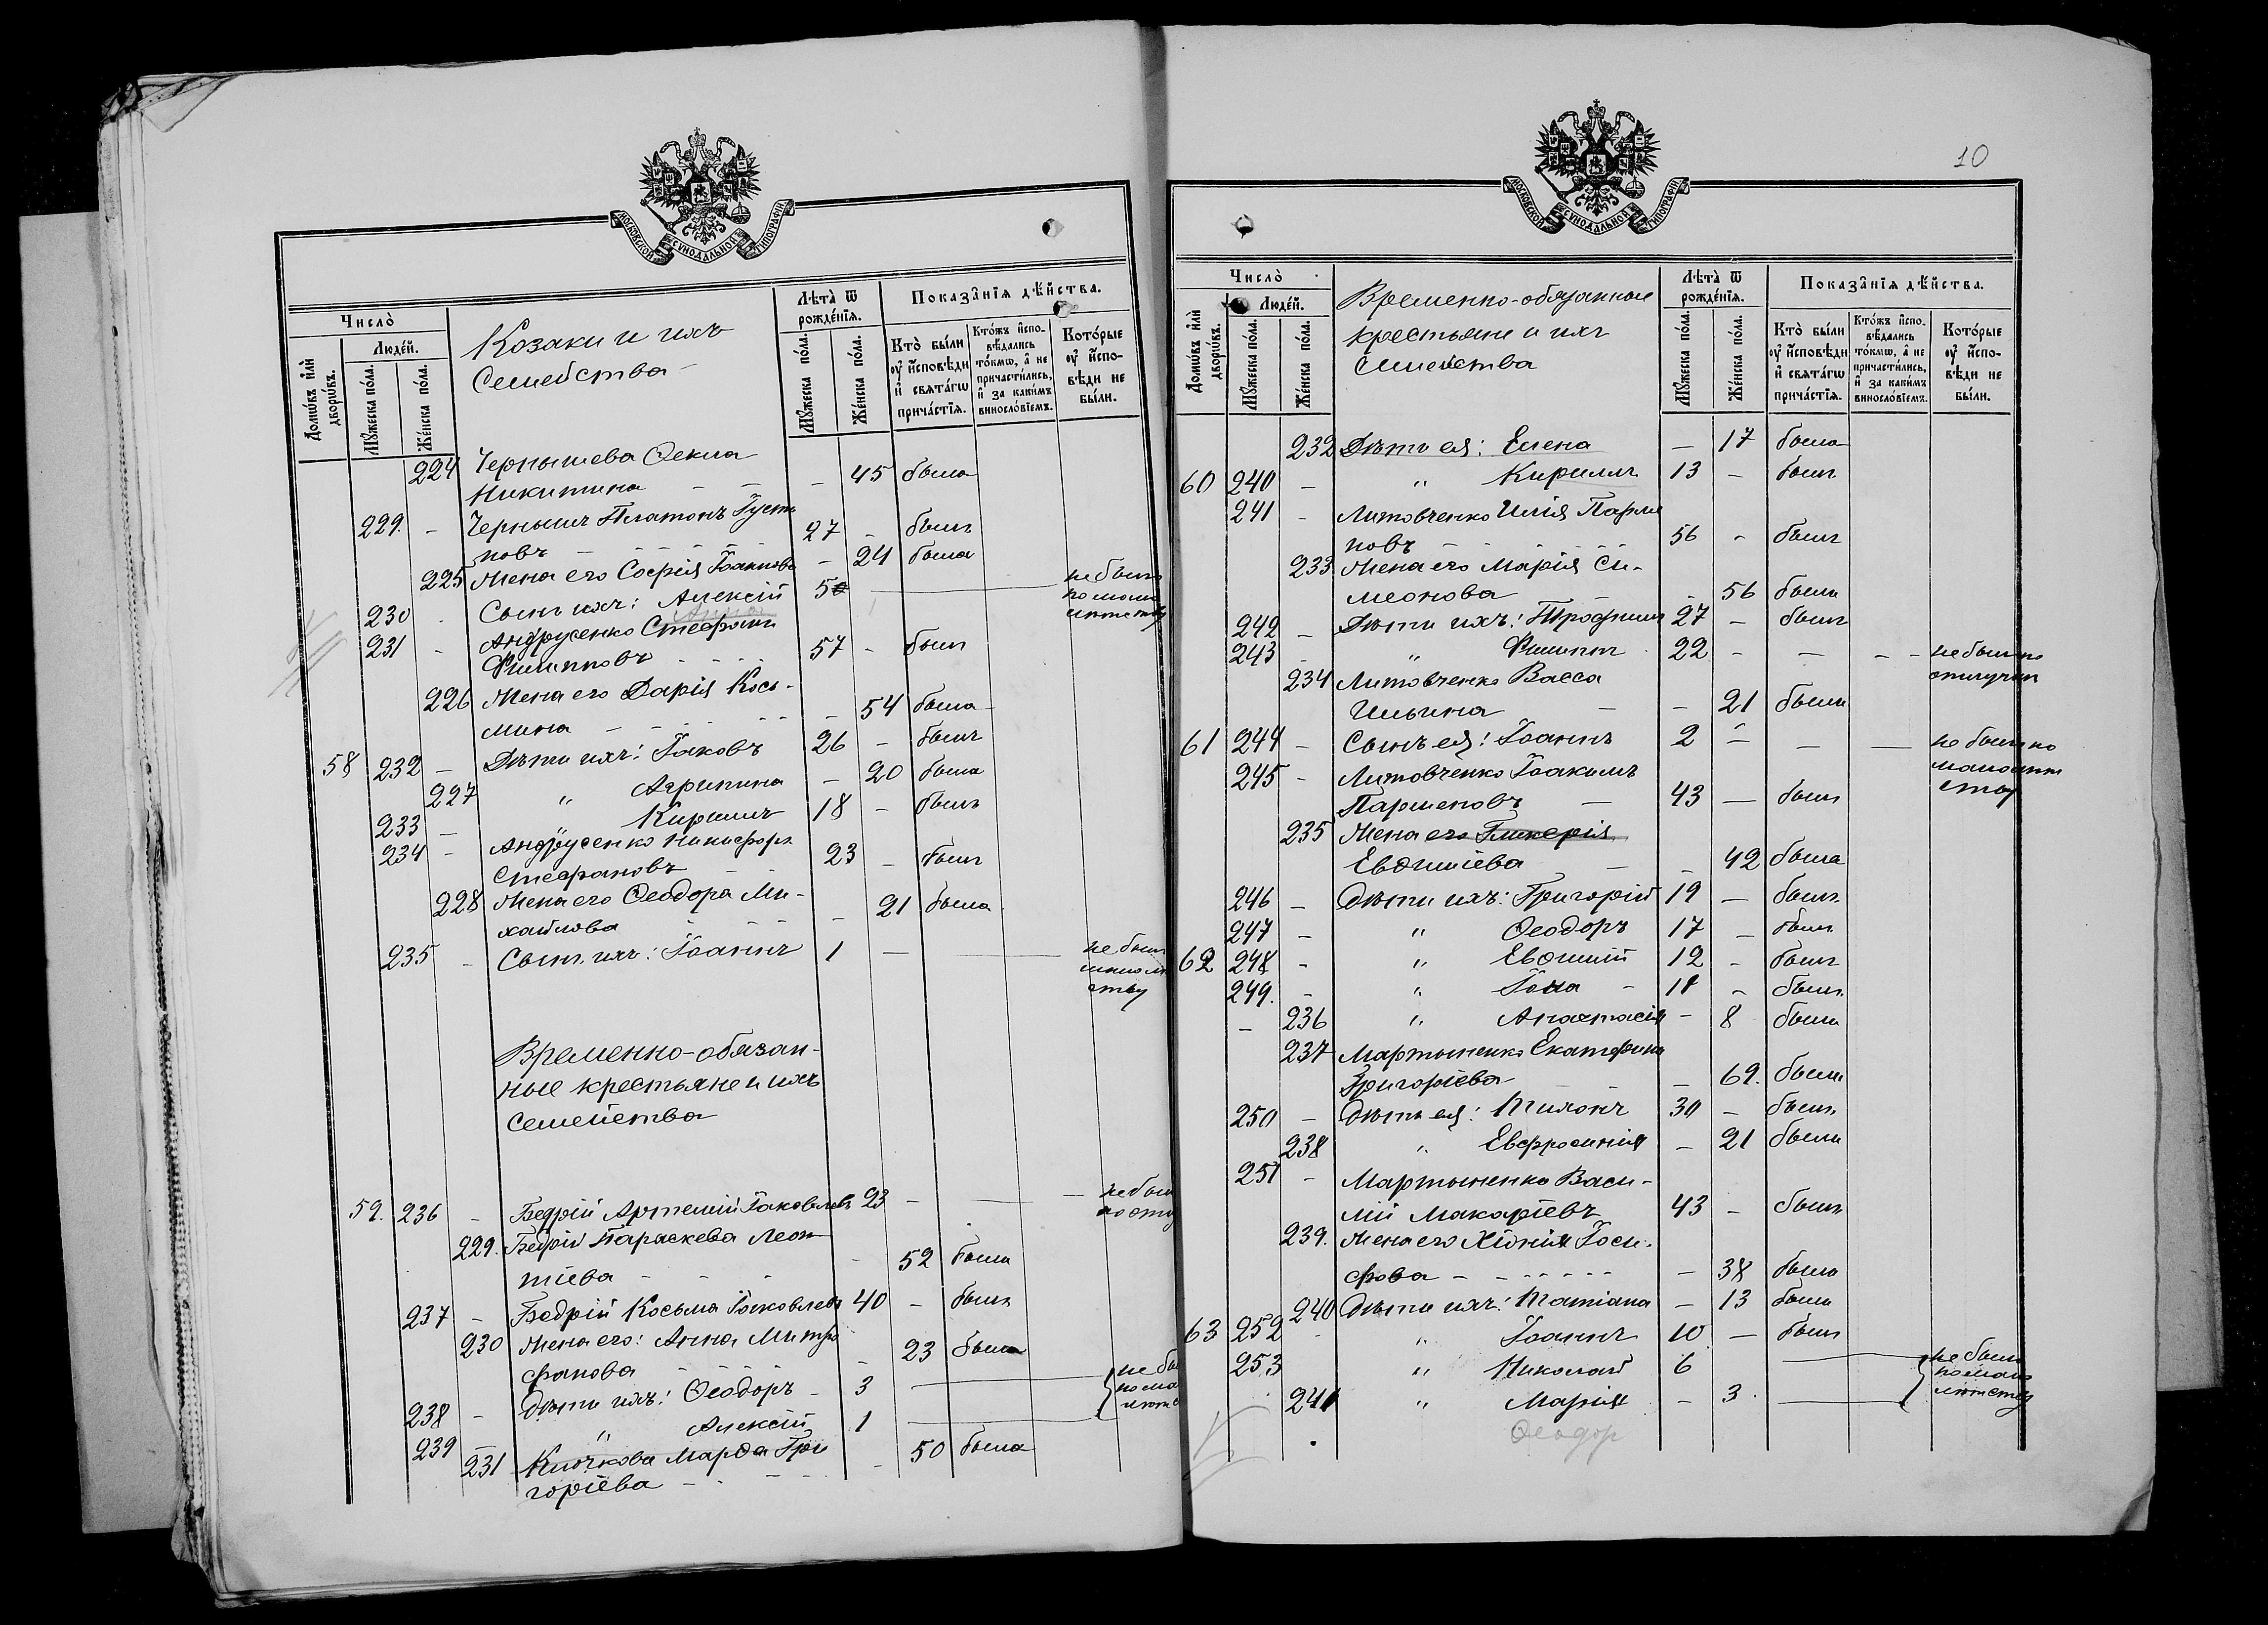 МОСКОВСКОЙ СѴНОДАЛЬНОЙ ТИПОГРАФІИ
Число̀
Люде́й.
Домѡ́въ и҆лѝ дворѡ́въ.
Мꙋ́жеска по́ла.
Же́нска по́ла.
Козаки и ихъ
Семейства
Лѣ́та ѿ рожде́нїѧ.
Мꙋ́жеска по́ла.
Же́нска по́ла.
Показа̑нїѧ дѣ́йства.
Кто̀ бы́ли ᲂу҆ и҆сповѣ́ди и҆ свѧта́гѡ прича́стїѧ.
Кто́жъ и҆сповѣ́дались то́кмѡ, а҆ не причасти́лись, и҆ за каки́мъ винослові́емъ.
Кото́рые ᲂу҆ и҆спо́вѣди не бы́ли.
224 Чернышева Ѳекла
Никитина - 45 была
229. - Чернышъ Платонъ Густи
новъ 27 - былъ
225 Жена его Софія Іоаннова - 24 была
230 Сынъ ихъ: Алексій 5 не былъ
по мало
лѣтству
Анна
231 - Андрусенко Стефанъ
Филипповъ 57 - былъ
226 Жена его Дарія Кось-
мина - 54 была
58 232 - Дѣти ихъ: Іаковъ 26 - былъ
227 " Агрипина - 20 была
233 - Кириллъ 18 - былъ
234 - Андрусенко Никифоръ
Стефановъ 23 - былъ
228 Жена его Ѳеодора Ми-
хайлова - 21 была
235 - Сынъ ихъ: Іоаннъ 1 - не былъ
Временно-обязан-
ные крестьяне и ихъ
Семейства
59. 236 - Бедрій Артемій Іаковлевъ 23 - не был
229. Бедрій Параскева Леон
тіева - 52 была
237 - Бедрій Косьма Іаковлевъ 40 - былъ
230 Жена его: Анна Митро
фанова - 23 была
238 - Дѣти ихъ: Ѳеодоръ - 3 не бы
по ма
лѣт
239 - " Алексій 1
231 Клочкова Марѳа Гри
горіева - 50 была
10
МОСКОВСКОЙ СѴНОДАЛЬНОЙ ТИПОГРАФІИ
Число̀
Люде́й.
Домѡ́въ и҆лѝ дворѡ́въ.
Мꙋ́жеска по́ла.
Же́нска по́ла.
Временно-обязанные
крестьяне и ихъ
Семейства
Лѣ́та ѿ рожде́нїѧ.
Мꙋ́жеска по́ла.
Же́нска по́ла.
Показа̑нїѧ дѣ́йства.
Кто̀ бы́ли ᲂу҆ и҆сповѣ́ди и҆ свѧта́гѡ прича́стїѧ.
Кто́жъ и҆сповѣ́дались то́кмѡ, а҆ не причасти́лись, и҆ за каки́мъ винослові́емъ.
Кото́рые ᲂу҆ и҆спо́вѣди не бы́ли.
232 Дѣти ея: Елена - 17 была
60 240 - " Кириллъ 13 - былъ
241 - Литовченко Илія Парме
новъ 56 - былъ
233 Жена его Марія Си-
меонова - 56 была
242 - Дѣти ихъ: Трофимъ 27 - былъ
243 - " Филиппъ 22 - - - не былъ по
отлучкѣ
234 Литовченко Васса
Ильина - - 21 была
61 244 - Сынъ ея: Іоаннъ 2 - - - не былъ по
малолѣт
ству
245 - Литовченко Іоакимъ
Парменовъ - 43 - былъ
235 Жена его Гликерія
Евѳиміева - - 42 была
246 - Дѣти ихъ: Григорій 19 - былъ
247 - " Ѳеодоръ 17 - былъ
62 248 - " Евѳимій 12 - былъ
249. - " Іона - 11 - былъ
- 236 " Анастасія - 8 была
237 Мартыненко Екатерина
Григоріева - 69. была
250 - Дѣти ея: Тихонъ 30 - былъ
238 " Евфросинія - 21 была
251 - Мартыненко Васи-
лій Макаріевъ 43 - былъ
239. Жена его Хіонія Іоси-
фова - 38 была
240 Дѣти ихъ: Татіана - 13 была
63 252 - " Іоаннъ 10 - былъ
253 " Николай 6 не были
по мало
лѣтству
241 " Марія - 3
Ѳеодор